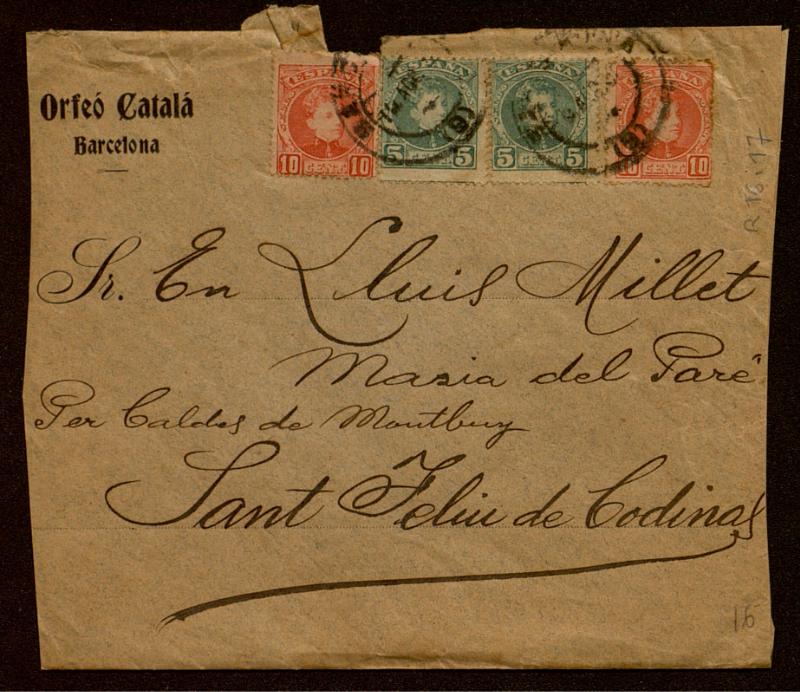 Orfeó Català
Barcelona
ESPAÑA ESPAÑA ESPAÑA ESPAÑA
10 CENT. 10 5 CENT. 5 5 CENT. 5 10 CENT. 10
(6) (6)
R 16.17
Sr. En Lluis Millet
Masia del Paré
Per Caldes de Montbuy
Sant Feliu de Codinas
16